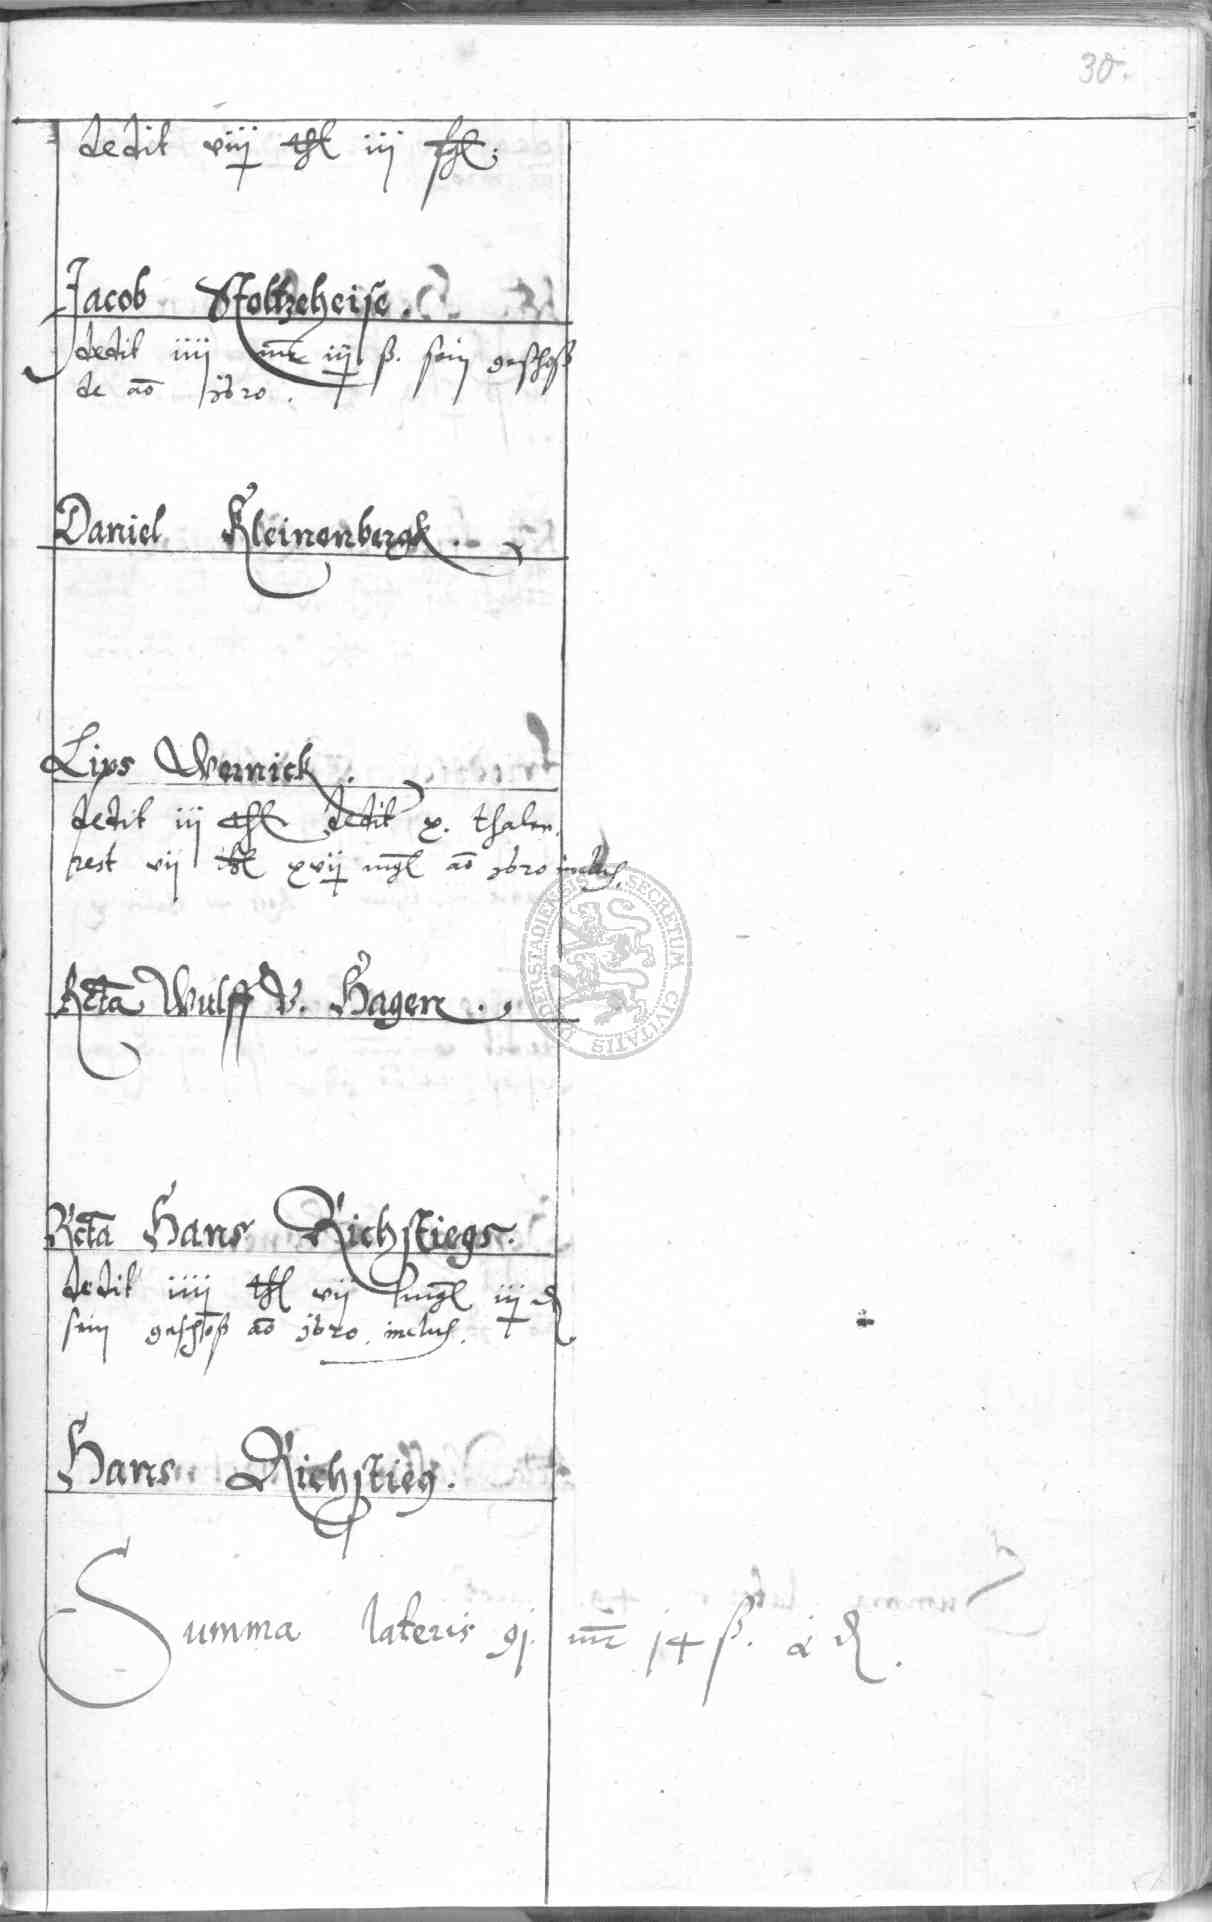 30.
dedit viiij thl iij fhl.
Jacob Stoltzeheise.
dedit iiij mr iij ß. sein geschoß
de ao 1620.
Daniel Kleinenbergk.
Lips Wernick.
dedit iij thl dedit x. thaler.
rest vij thl xvij mgl ao 1620 inclus.
Rcta Wulff V. Hagen.
Rcta Hans Richstiegs.
dedit iiij thl vij mgl iij d
sein geschoß ao 1620. inclus.
Hans Richstieg.
Summa lateris 91. mr 14 ß. 2 d.
SECRETUM CIVITATIS DUDERSTADIENSIS